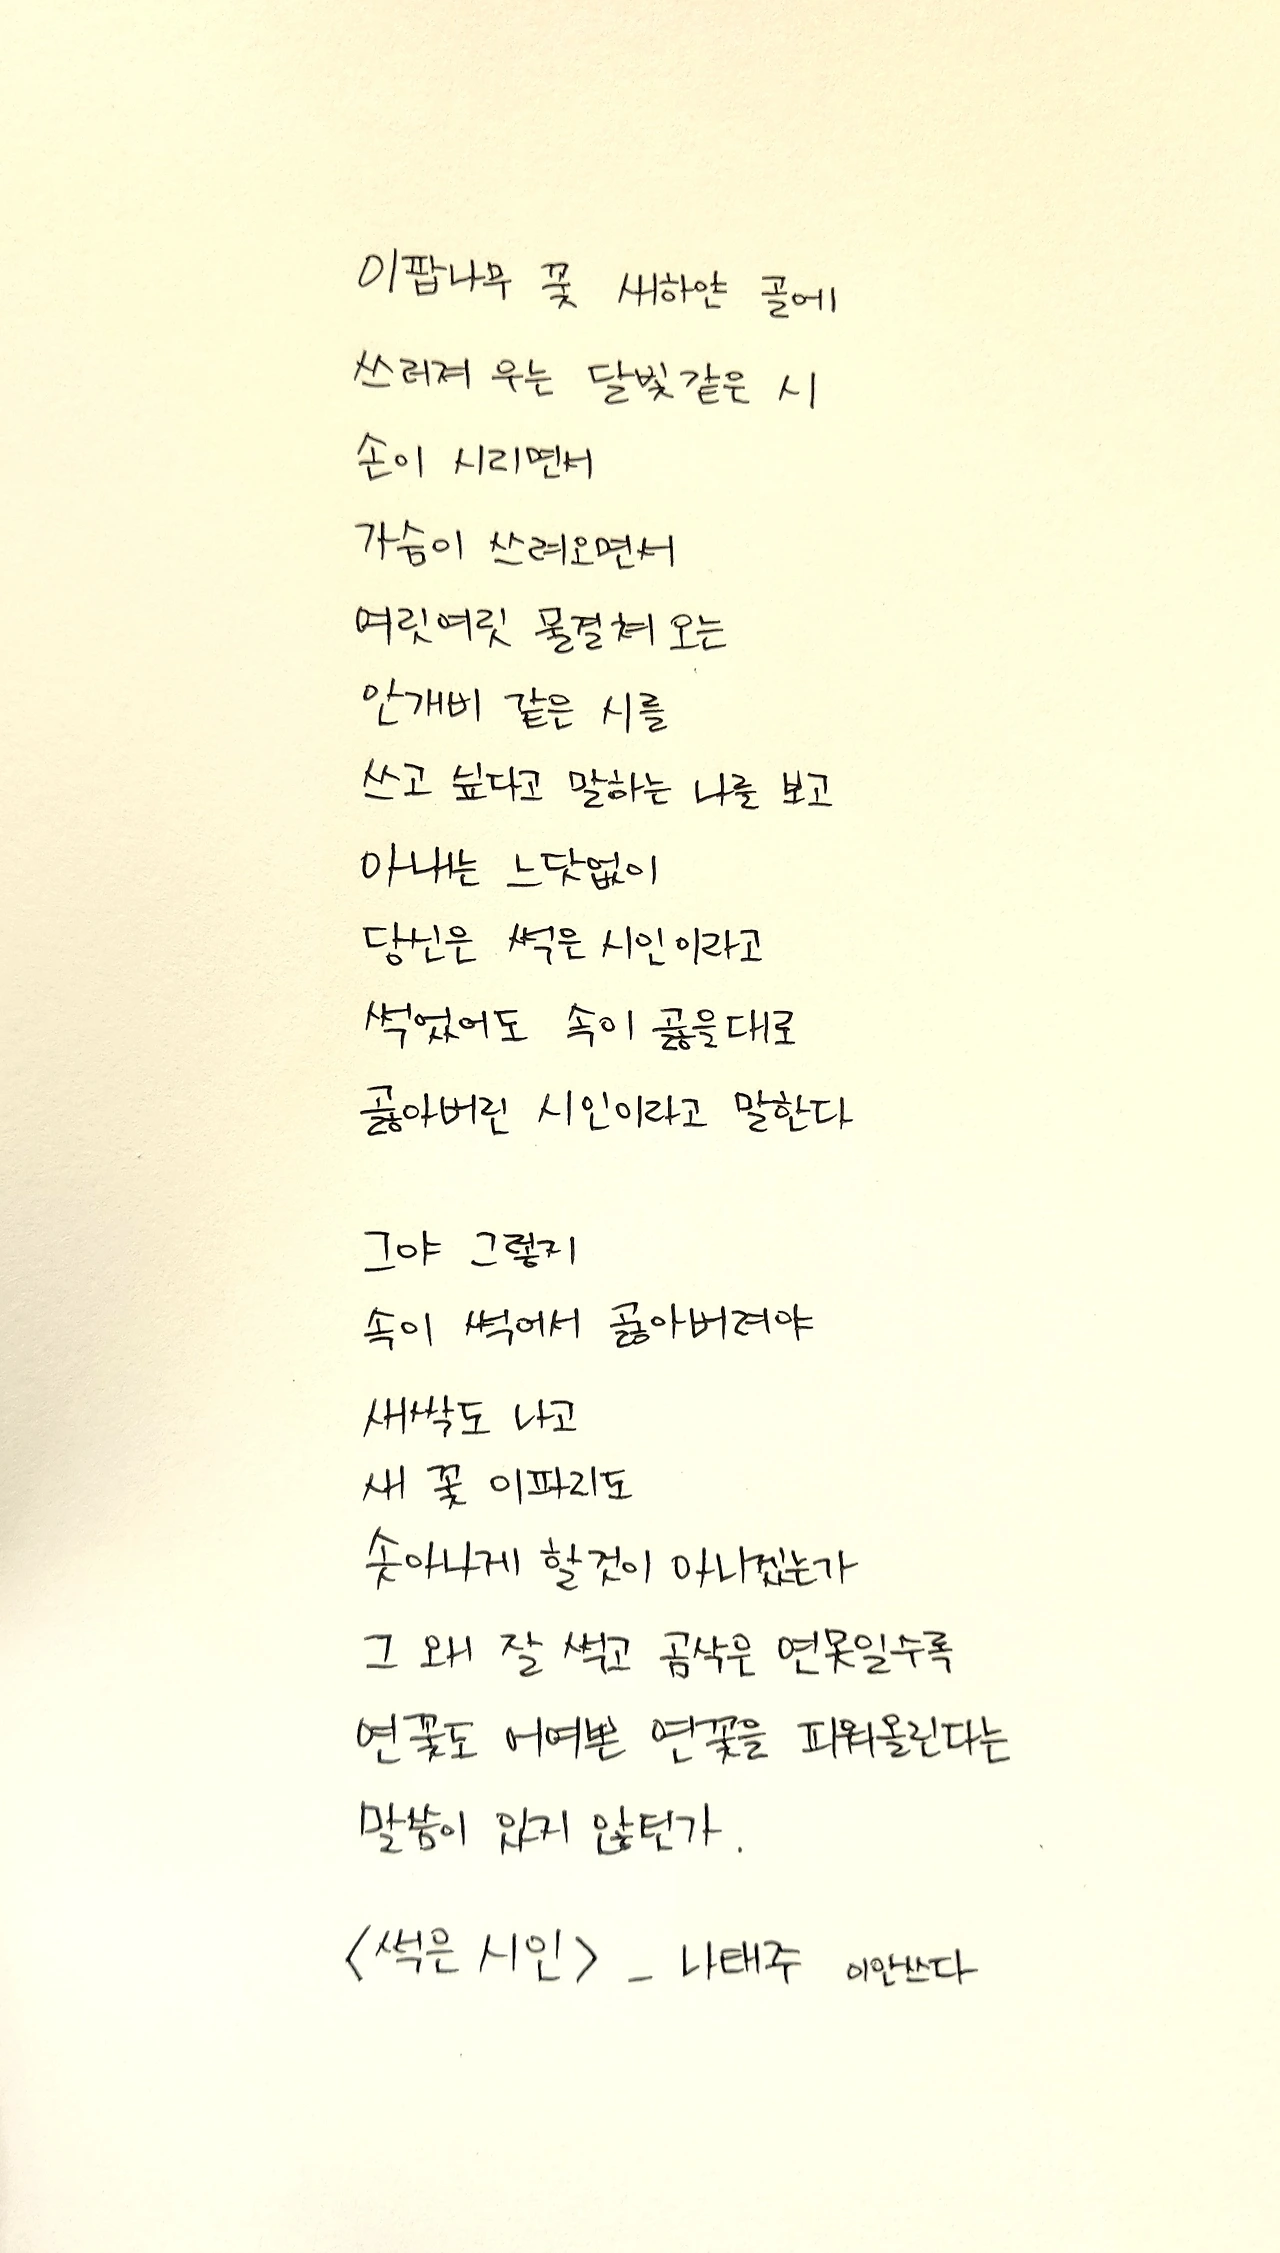 이팝나무 꽃 새하얀 골에
쓰러져 우는 달빛같은 시
손이 시리면서
가슴이 쓰려오면서
여릿여릿 물결쳐 오는
안개비 같은 시를
쓰고 싶다고 말하는 나를 보고
아내는 느닷없이
당신은 썩은 시인이라고
썩었어도 속이 곯을대로
곯아버린 시인이라고 말한다
그야 그렇지
속이 썩어서 곯아버려야
새싹도 나고
새 꽃 이파리도
솟아나게 할것이 아니겠는가
그 왜 잘 썩고 곰삭은 연못일수록
연꽃도 어여쁜 연꽃을 피워올린다는
말씀이 있지 않던가.
<썩은 시인> - 나태주 이안쓰다